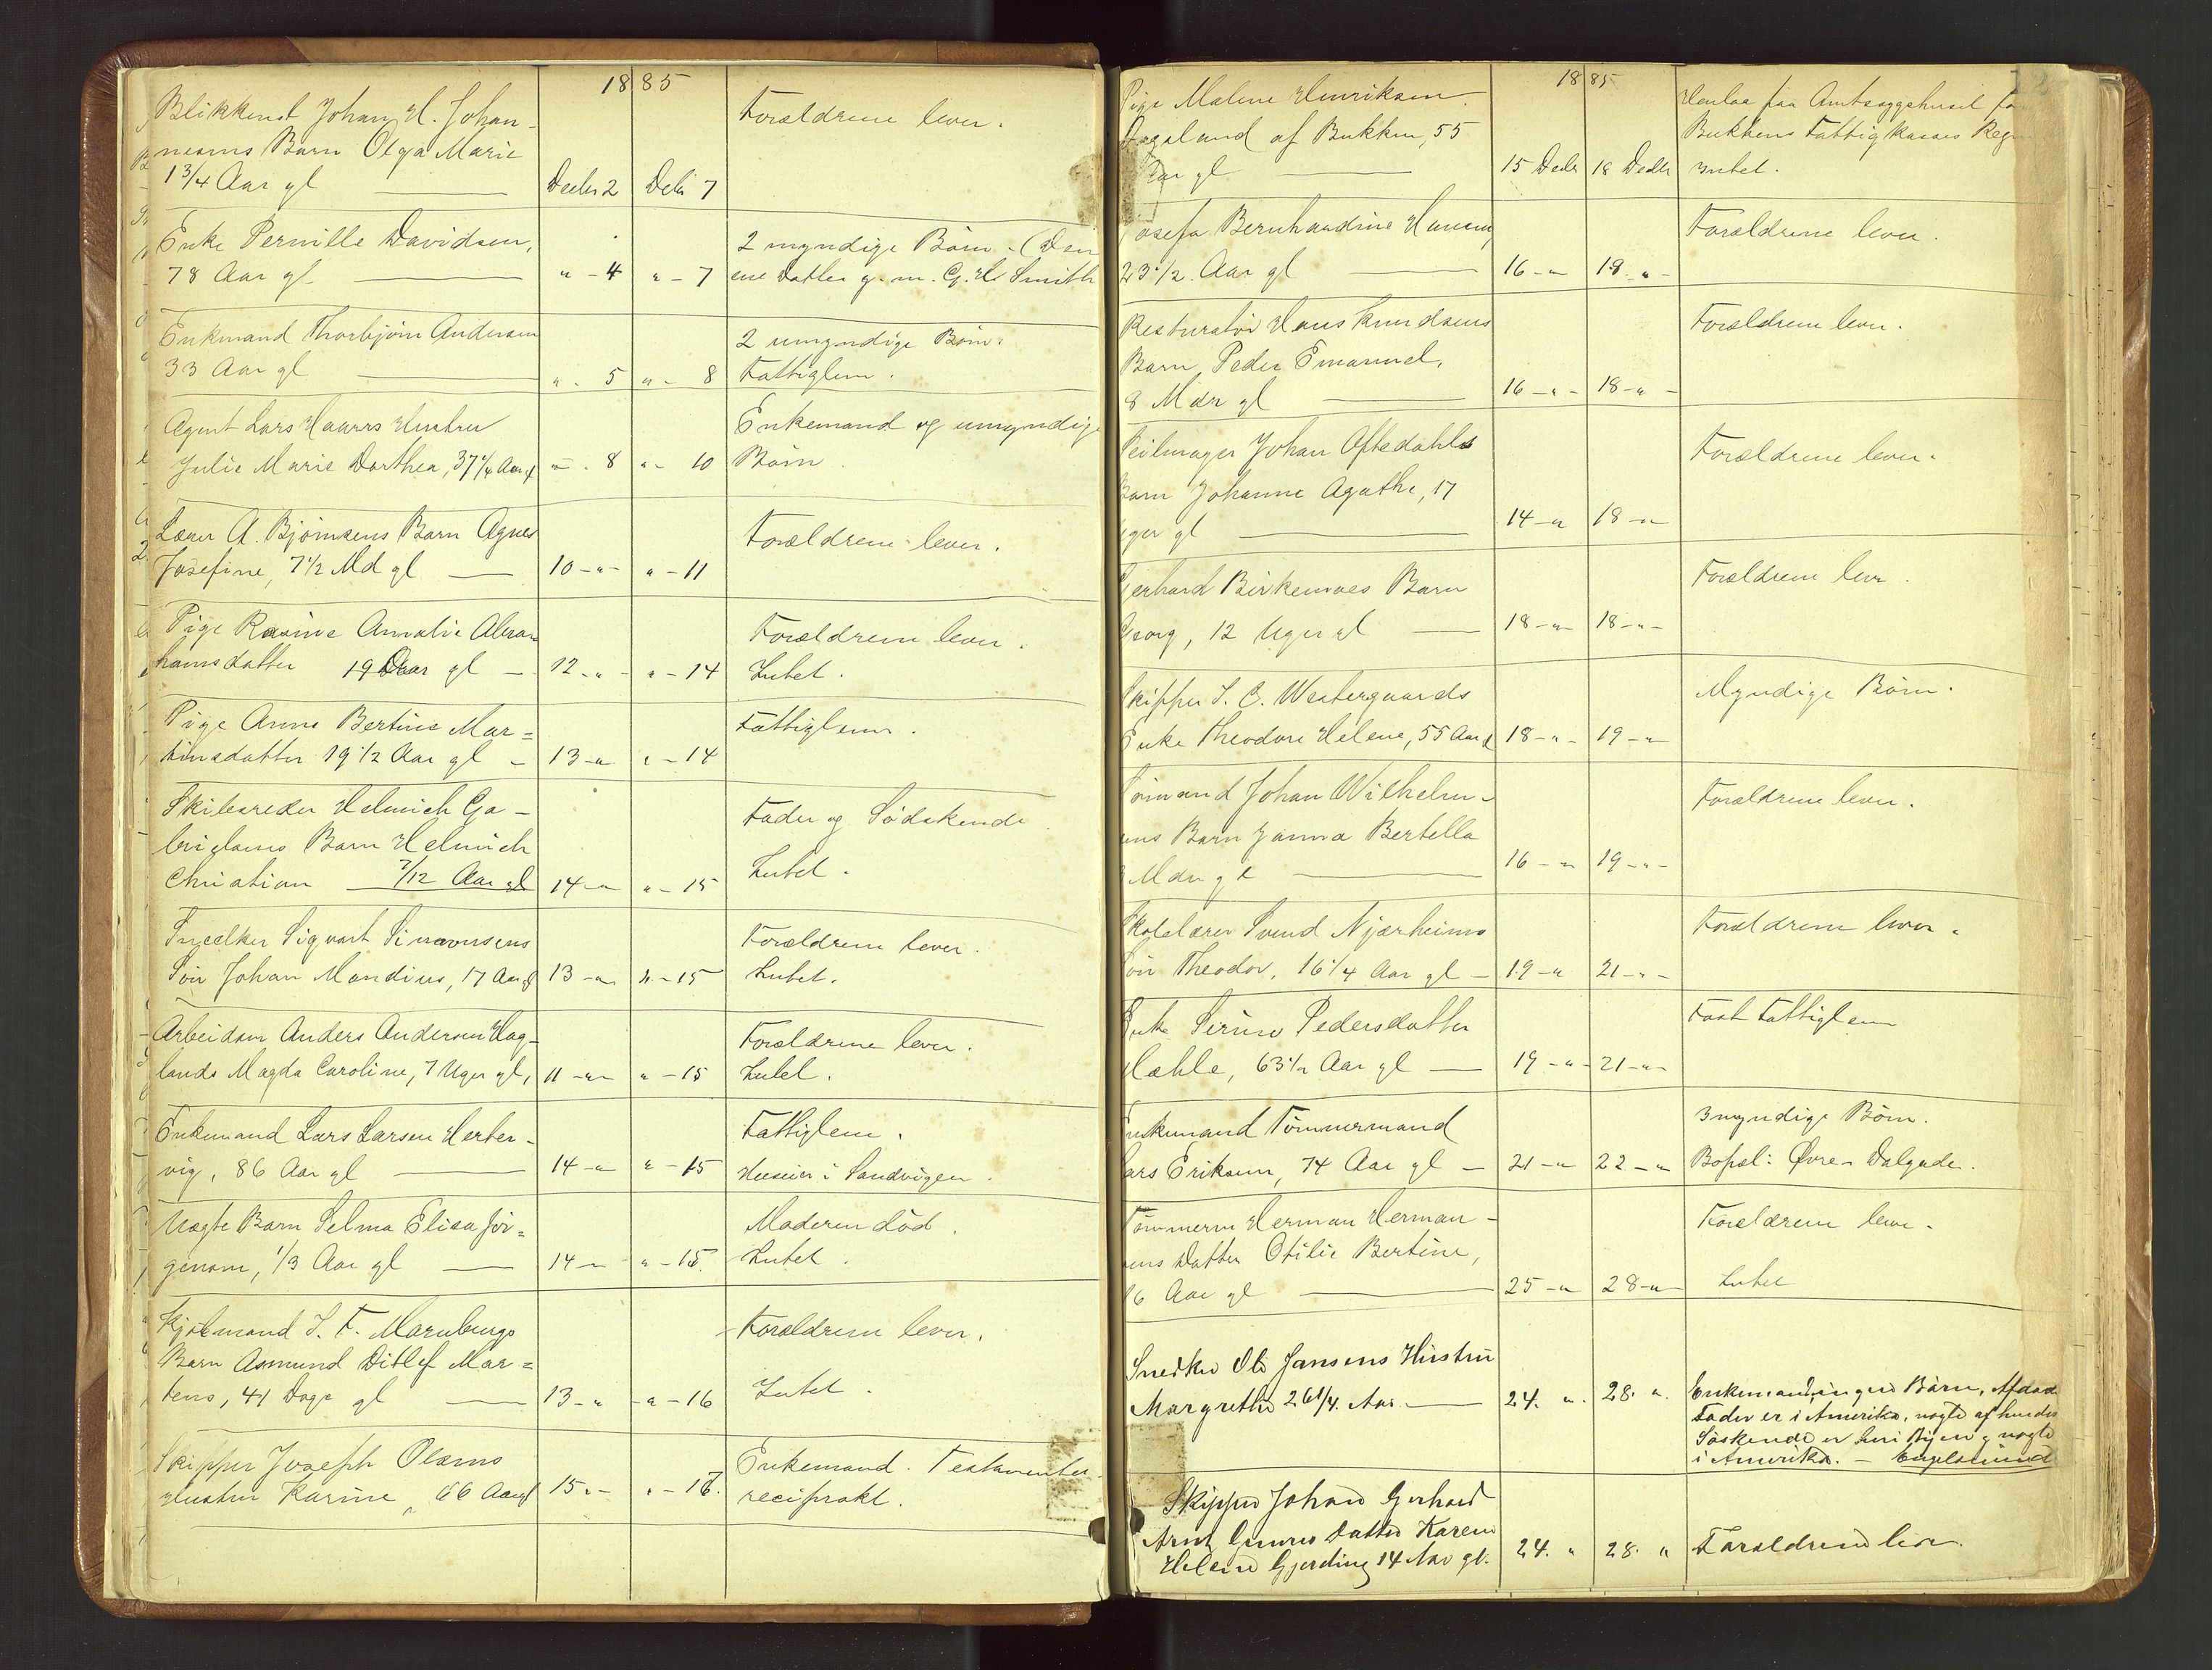 1885
Blikkensl Johan H. Johan-
nesens Barn Olga Marie
1 3/4 Aar gl — Decbr 2 Debr 7
Forældrene lever.
Enke Pernille Davidsen,
78 Aar gl. — " - 4 " - 7
2 myndige Börn - (Den
ene Datter g. m. G. H. Smith
Enkmand Thorbjörn Andersen
33 Aar gl — " - 5 " - 8
2 umyndige Börn.
Fattiglem.
Agent Lars Haarrs Hustru
Julie Marie Dorthea, 37 1/4 Aar gl " - 8 " - 10
Enkemand og umyndige
Börn
Lærer A. Björnsens Barn Agnes
Josefine, 7 1/2 Md gl — 10 - " - " - 11
Forældrene lever.
Pige Rasine Amalie Abra-
hamsdatter 19 Aar gl - 12 - " - " - 14
Forældrene lever.
Intet.
Pige Anne Bertine Mar=
tinsdatter 19 1/2 Aar gl - 13 - " " - 14
Fattiglem.
Skibsreder Helmich Ga-
brielsens Barn Helmich
Christian 7/12 Aar gl 14 - " " - 15
Fader og Södskende
Intet.
Snedker Sigvart Simonsens
Sön Johan Mandius, 17 Aar gl 13 - " " - 15
Forældrene lever.
Intet.
Arbeidsm Anders Andersen Hag-
lands Magda Caroline, 7 Uger gl, 11 - " " - 15
Forældrene lever.
Intet.
Enkemand Lars Larsen Herter-
vig, 86 Aar gl — 14 - " " - 15
Fattiglem.
Huseier i Sandvigen.
Uægte Barn Selma Elisa Jör=
gensen, 1/3 Aar gl — 14 - " " - 15
Moderen död.
Intet.
Kjöbmand J. F. Marnburgs
Barn Asmund Ditlef Mar=
tens, 41 Dage gl — 13 - " " - 16
Forældrene lever.
Intet.
Skipper Joseph Olsens
Hustru Karine, 66 Aar gl 15 " - " - 18.
Enkemand. Testamenter
reciprokt.
1885
Pige Malene Henriksen
af Bukken, 55
Aar gl — 15 Decbr 18 Decbr
paa Amtssygehuset for
Bukkens Fattigkasses Regn
intet.
Josefa Bernhardine Hansen,
23 1/2 Aar gl — 16 - " 18 - " -
Forældrene lever.
Restauratör Hans Knudsens
Barn Peder Emanuel,
8 Mdr gl — 16 - " - 18 - " -
Forældrene lever.
Seilmager Johan Oftedahls
Barn Johanne Agathe, 17
Uger gl — 14 - " 18 - "
Forældrene lever.
Gerhard Birkenæs Barn
Georg, 12 Uger gl — 18 - " 18 - " -
Forældrene lever.
Skipper S. C. Westergaards
Enke Theodore Helene, 55 Aar gl 18 - " - 19 - "
Myndige Börn.
Sömand Johan Wilhelm-
sens Barn Janna Bertella
Mdr gl — 16 - " 19 - " -
Forældrene lever.
Skolelærer Svend Njærheims
Sön Theodor, 16 1/4 Aar gl - 19 - " 21 - " -
Forældrene lever.
Enke Serine Pedersdatter
Mæhle, 63 1/2 Aar gl — 19 - " - 21 - " -
Fast Fattiglem
Enkemand Tömmermand
Lars Eriksen, 74 Aar gl - 21 - " 22 - "
3 myndige Börn.
Bopæl: Øvre Dalgade.
Tömmerm Herman Herman-
sens Datter Otilie Bertine,
16 Aar gl — 25 - " 28 - "
Forældrene lever.
Intet
Snedker Ole Jansens Hustru
Margrethe 26 1/4. Aar. — 24. ". 28. ".
Enkemand, ingen Börn, Afdøde
Fader er i Amerika, nogle af hendes
Söskende er her i Byen & nogle
i Amerika. - Engelsminde
Skipper Johan Gerhard
Datter Karen
Helene Gjerding 14 Aar gl. 24. " 28. "
Forældrene lever.